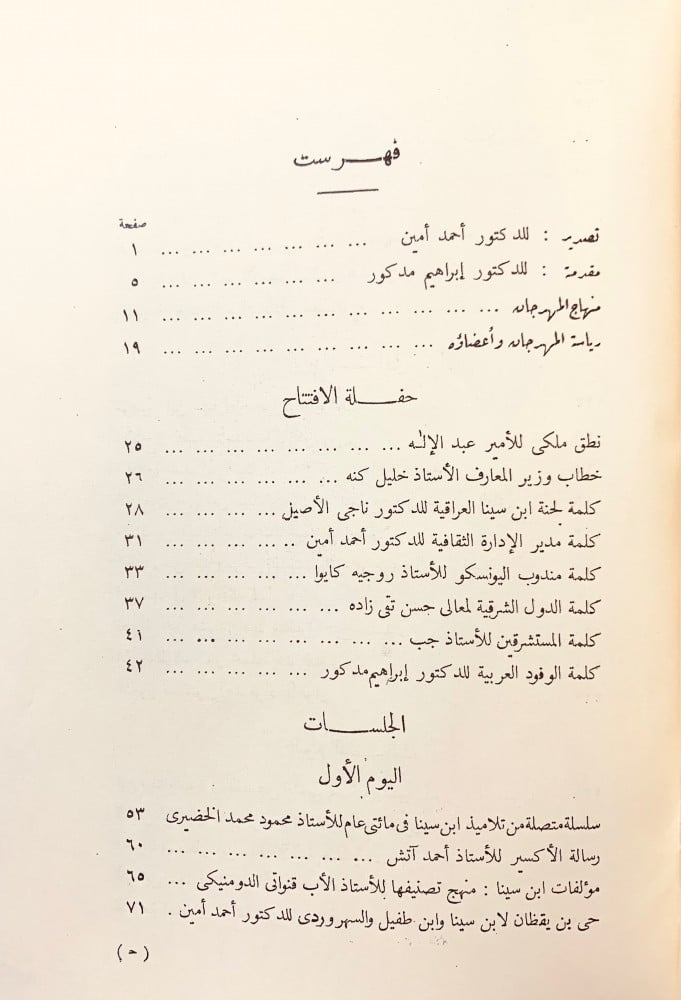 فهرست
صفحة
تصدير : للدكتور أحمد أمين ... ... ... ... ... ... ... ١
مقدمة : للدكتور إبراهيم مدكور ... ... ... ... ... ... ٥
منهاج المهرجان ... ... ... ... ... ... ... ... ... ... ... ١١
رياسة المهرجان وأعضاؤه ... ... ... ... ... ... ... ... ... ١٩
حفلة الافتتاح
نطق ملكى للأمير عبد الإلٰه ... ... ... ... ... ... ... ... ٢٥
خطاب وزير المعارف الأستاذ خليل كنه ... ... ... ... ... ... ٢٦
كلمة لجنة ابن سينا العراقية للدكتور ناجى الأصيل ... ... ... ... ٢٨
كلمة مدير الإدارة الثقافية للدكتور أحمد أمين .. ... ... ... ... ٣١
كلمة مندوب اليونسكو للأستاذ روجيه كايوا ... ... ... ... ... ٣٣
كلمة الدول الشرقية لمعالى حسن تقى زاده ... ... ... ... ... ... ٣٧
كلمة المستشرقين للأستاذ جب ... ... ... ... ... ... ... ... ٤١
كلمة الوفود العربية للدكتور إبراهيم مدكور ... ... ... ... ... ٤٢
الجلسات
اليوم الأول
سلسلة متصلة من تلاميذ ابن سينا فى مائتى عام للأستاذ محمود محمد الخضيرى ٥٣
رسالة الأكسير للأستاذ أحمد آتش ... ... ... ... ... ... ... ٦٠
مؤلفات ابن سينا : منهج تصنيفها للأستاذ الأب قنواتى الدومنيكى ... ٦٥
حى بن يقظان لابن سينا وابن طفيل والسهروردى للدكتور أحمد أمين . ٧١